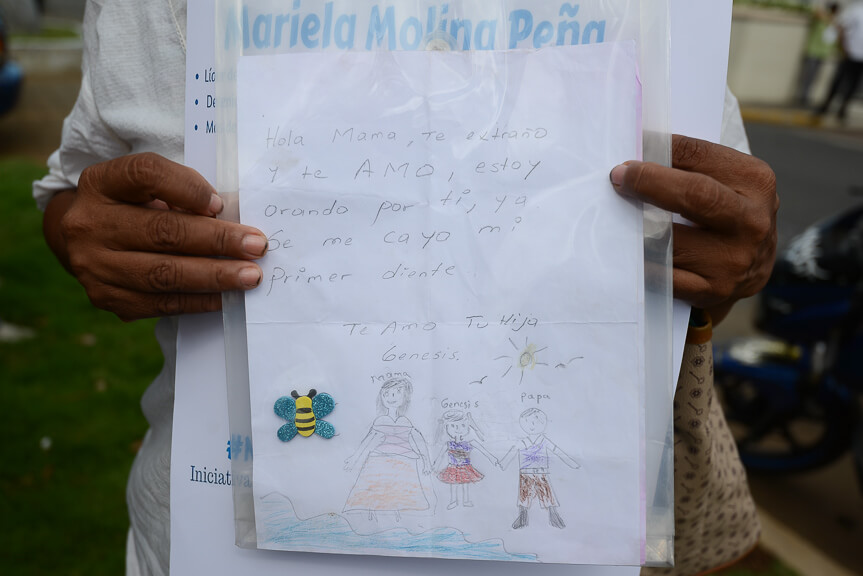 Mariela Molina Peña
• Líd
• De
• Mo
Hola Mama, te extraño
y te AMO, estoy
orando por ti, ya
Se me cayo mi
Primer diente.
Te Amo Tu Hija
Genesis.
Mama
Genesis
Papa
#N
Iniciativa